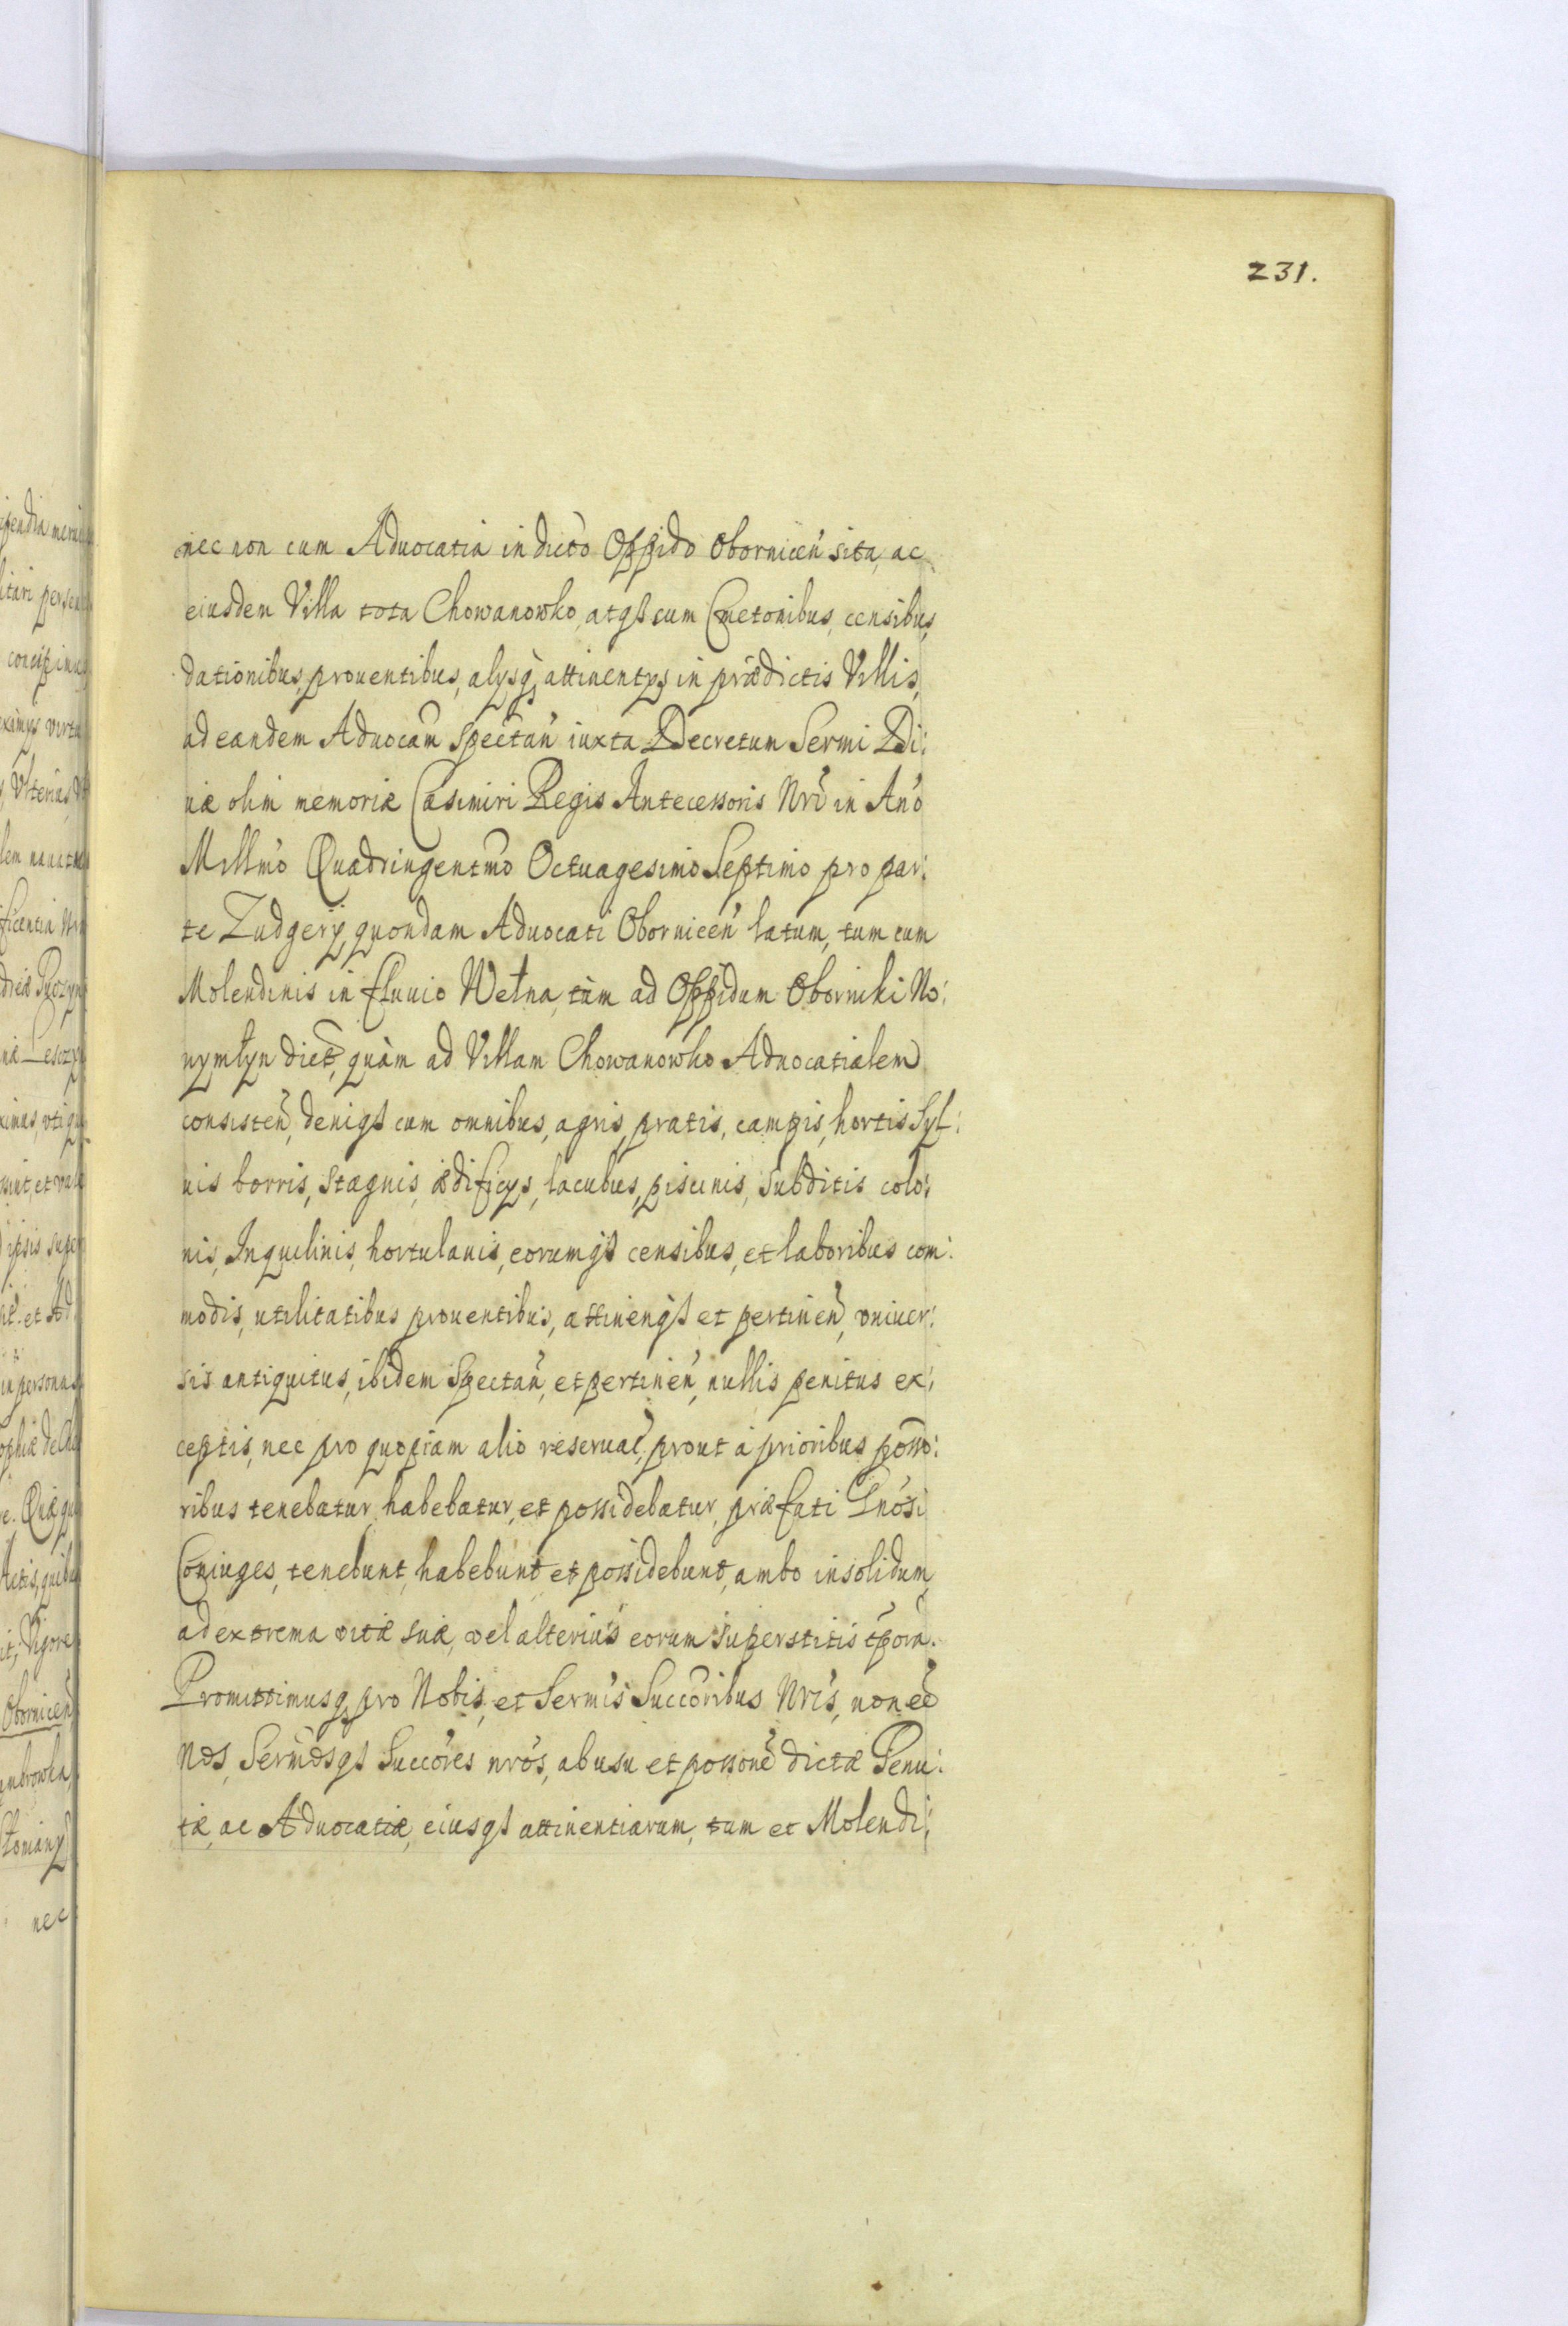 231.
nec non cum Aduocatia in dicto Oppido Obornicen̄ sita, ac
eiusdem Villa tota Chowanowko, atq3 cum Cmetonibus, censibus,
dationibus, prouentibus, alysq3 attinentys in prædictis Villis,
ad eandem Aduocam̄ spectan̄ iuxta Decretum Sermi Di:
uæ olim memoriæ Casimiri Regis Antecessoris Nrī in Ano
Millmo Quadringentmo Octuagesimo Septimo pro par:
te Ludgerÿ, quondam Aduocati Obornicen̄ latum, tum cum
Molendinis in fluuio Wełna, tàm ad Oppidum Oborniki No:
nymłyn dict̄, quàm ad Villam Chowanowko Aduocatialem
consisten̄, deniq3 cum omnibus, agris, pratis, campis, hortis Syl:
uis borris, stagnis, ædificys, lacubus, piscinis, subditis colo:
nis, Inquilinis, hortulanis, eorumq3 censibus, et laboribus com:
modis, utilitatibus prouentibus, attinenq3 et pertinen̄, vniuer:
sis antiquitus, ibidem Spectan̄, et pertinen̄, nullis penitus ex:
ceptis, nec pro quopiam alio reseruat̄, prout à prioribus posso:
ribus tenebatur, habebatur, et possidebatur, præfati Gnosi
Coniuges, tenebunt, habebunt et possidebunt, ambo insolidum,
ad extrema vitæ suæ, vel alterius eorum superstitis tpora.
Promittimusq3 pro Nobis, et Sermis Succoribus Nris, non eē
Nos, Sermosq3 Succores nros, ab usu et possone dictæ Tenu:
tæ, ac Aduocatiæ, eiusq3 attinentiarum, tum et Molendi: